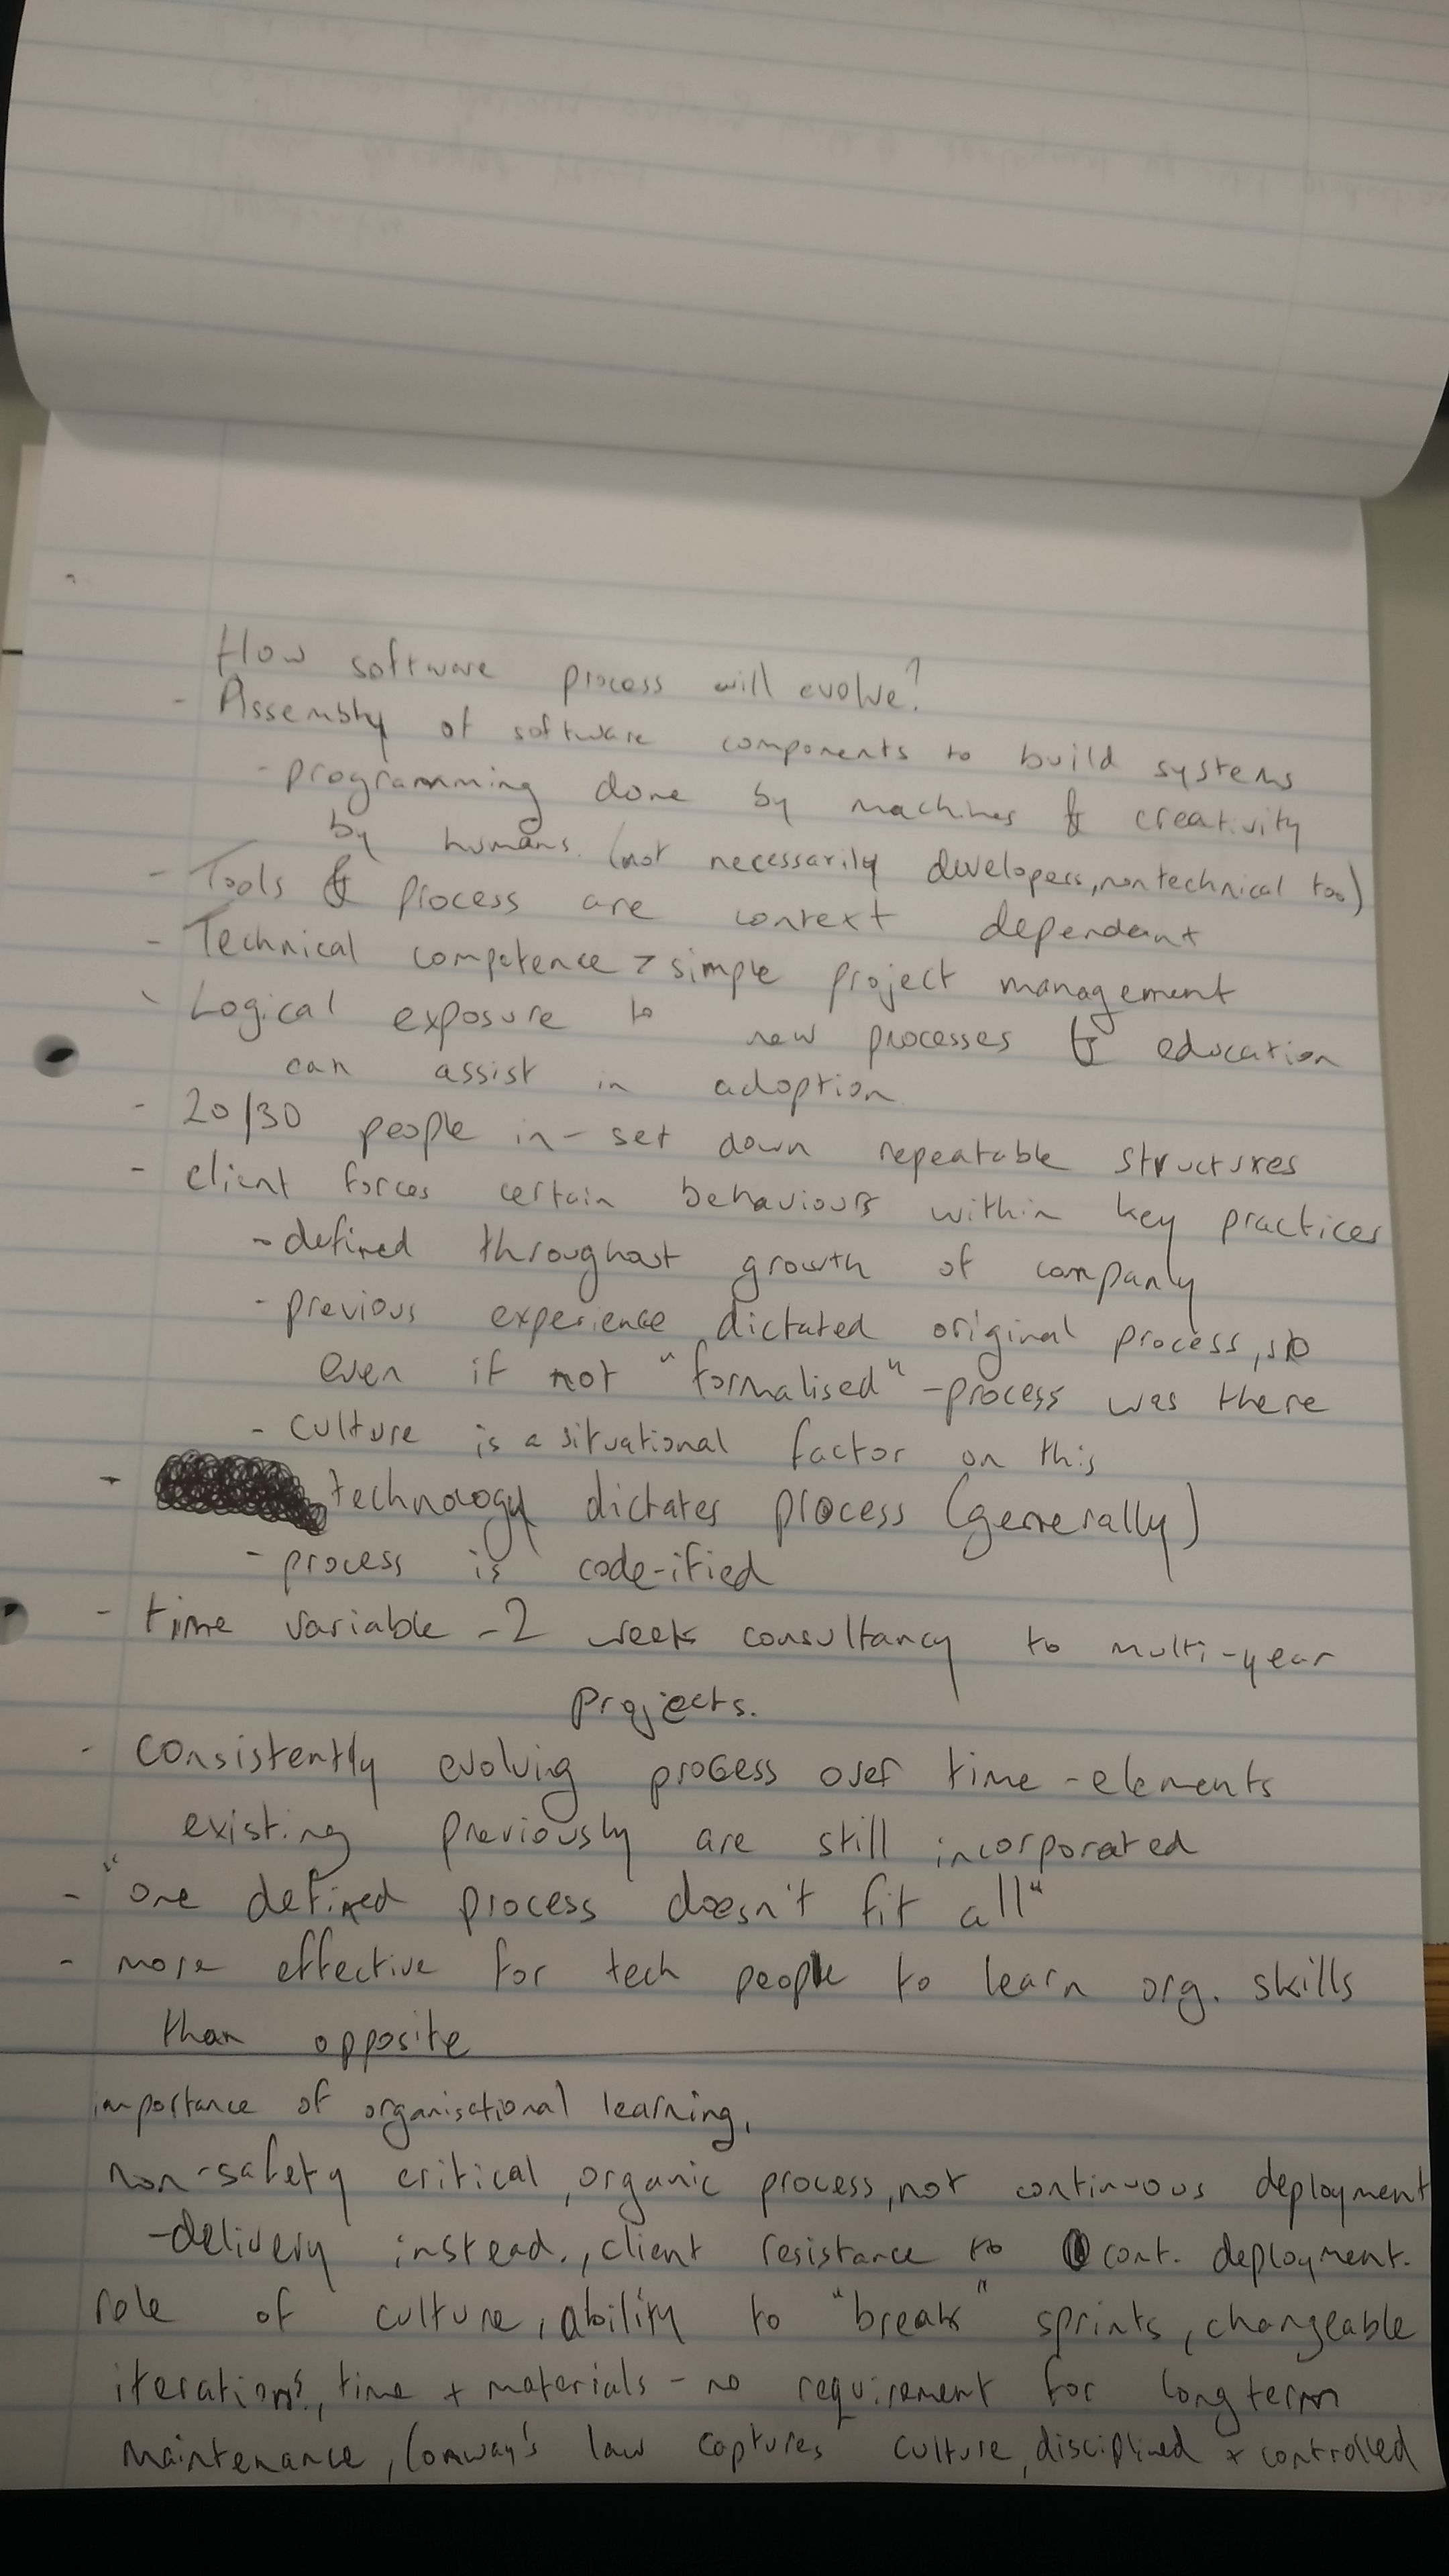 How software process will evolve?
- Assembly of software components to build systems
- programming done by machines & creativity
by humans. (not necessarily developers, non technical too)
- Tools & process are context dependant
- Technical competence > simple project management
- Logical exposure to new processes & education
can assist in adoption
- 20/30 people in - set down repeatable structures
- client forces certain behaviours within key practices
- defined throughout growth of company
- previous experience dictated original process, so
even if not "formalised" - process was there
- culture is a situational factor on this
- technology dictates process (generally)
- process is code-ified
- time variable - 2 week consultancy to multi-year
projects.
- consistently evolving process over time - elements
existing previously are still incorporated
- "one defined process doesn't fit all"
- more effective for tech people to learn org. skills
than opposite
importance of organisational learning,
non-safety critical, organic process, not continuous deployment
- delivery instead., client resistance to cont. deployment.
role of culture, ability to "break" sprints, changeable
iterations, time + materials - no requirement for long term
maintenance, Conway's law captures culture, disciplined + controlled